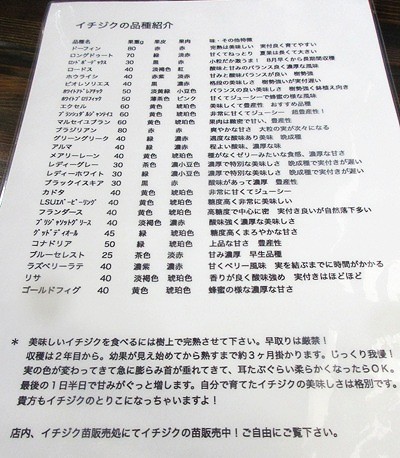 イチジクの品種紹介
品種名 果重g 果皮 果肉 味・その他特徴
ドーフィン 80 赤 赤 完熟は美味しい 実付良く育てやすい
ロングドゥート 70 緑 淡赤 甘くてねっとり 夏果は長くて大きい
ロードス 40 淡褐色 紅 酸味と甘みのバランス良く濃厚な風味
ホウライシ 40 紫 淡赤 甘みと酸味バランスが良い 樹勢強
ビオレソリエス 40 黒 濃赤 極強の甘みと酸味 樹勢強く実付きが遅い
ホワイトゼノア 50 淡黄緑 小豆色 バランスの良い美味しさ 樹勢強く鉢植え向き
エクセル 60 黄色 琥珀色 美味しくて豊産性 おすすめ品種
マルセイユブラン 60 黄色 琥珀色 果肉は緻密で甘い、豊産性
ブラジリアン 80 赤 赤 爽やかな甘さ 大粒の実が次々になる
グリーングリーク 40 緑 淡赤 適度な酸味あり美味 晩成種
アルマ 40 緑 淡赤 程よい酸味、濃厚な味
メアリーレーン 40 黄色 琥珀色 種がなくゼリーみたいな食感、濃厚な甘さ
レディーグレー 30 茶色 濃小豆色 濃厚で特別な美味しさ 晩成種で実付きが遅い
レディーホワイト 30 緑 濃小豆色 濃厚で特別な美味しさ 晩成種で実付きが遅い
ブラックイスキア 30 黒 赤 酸味があって濃厚 豊産性
カドタ 40 黄色 琥珀色 非常に甘くてジューシー
LSUスーパージーリング 40 黄色 琥珀色 糖度高く非常に美味しい
フランダース 40 黄色 琥珀色 高糖度で中心に密 実付き良いが自然落下多い
ブリジャソットグリース 40 淡褐色 濃赤 酸味強く濃厚な美味しさ
グッドディオール 45 緑 琥珀色 糖度高くまろやかな甘さ
コナドリア 50 緑 琥珀色 上品な甘さ 豊産性
ブルーセレスト 25 茶色 淡赤 甘み濃厚 早生品種
ラズベリーラテ 40 濃紫 濃赤 甘くベリー風味 実を結ぶまでに時間がかかる
リサ 40 淡褐色 琥珀色 香りが良く酸味強め 実付きはほどほど
ゴールドフィグ 40 黄色 琥珀色 蜂蜜の様な濃厚な甘さ
＊ 美味しいイチジクを食べるには樹上で完熟させて下さい。早取りは厳禁！
収穫は２年目から。幼果が見え始めてから熟すまで約３ヶ月掛かります。じっくり我慢！
実の色が変わってきて急に膨らみ首が垂れてきて、耳たぶぐらい柔らかくなったらＯＫ。
最後の１日半日で甘みがぐっと増します。自分で育てたイチジクの美味しさは格別です。
貴方もイチジクのとりこになっちゃいますよ！
店内、イチジク苗販売処にてイチジクの苗販売中！ご自由にご覧下さい。